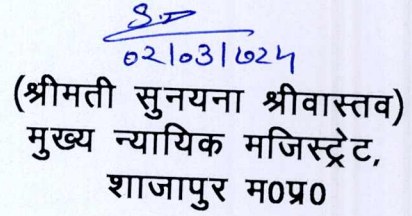 02/03/2024
(श्रीमती सुनयना श्रीवास्तव)
मुख्य न्यायिक मजिस्ट्रेट,
शाजापुर म0प्र0